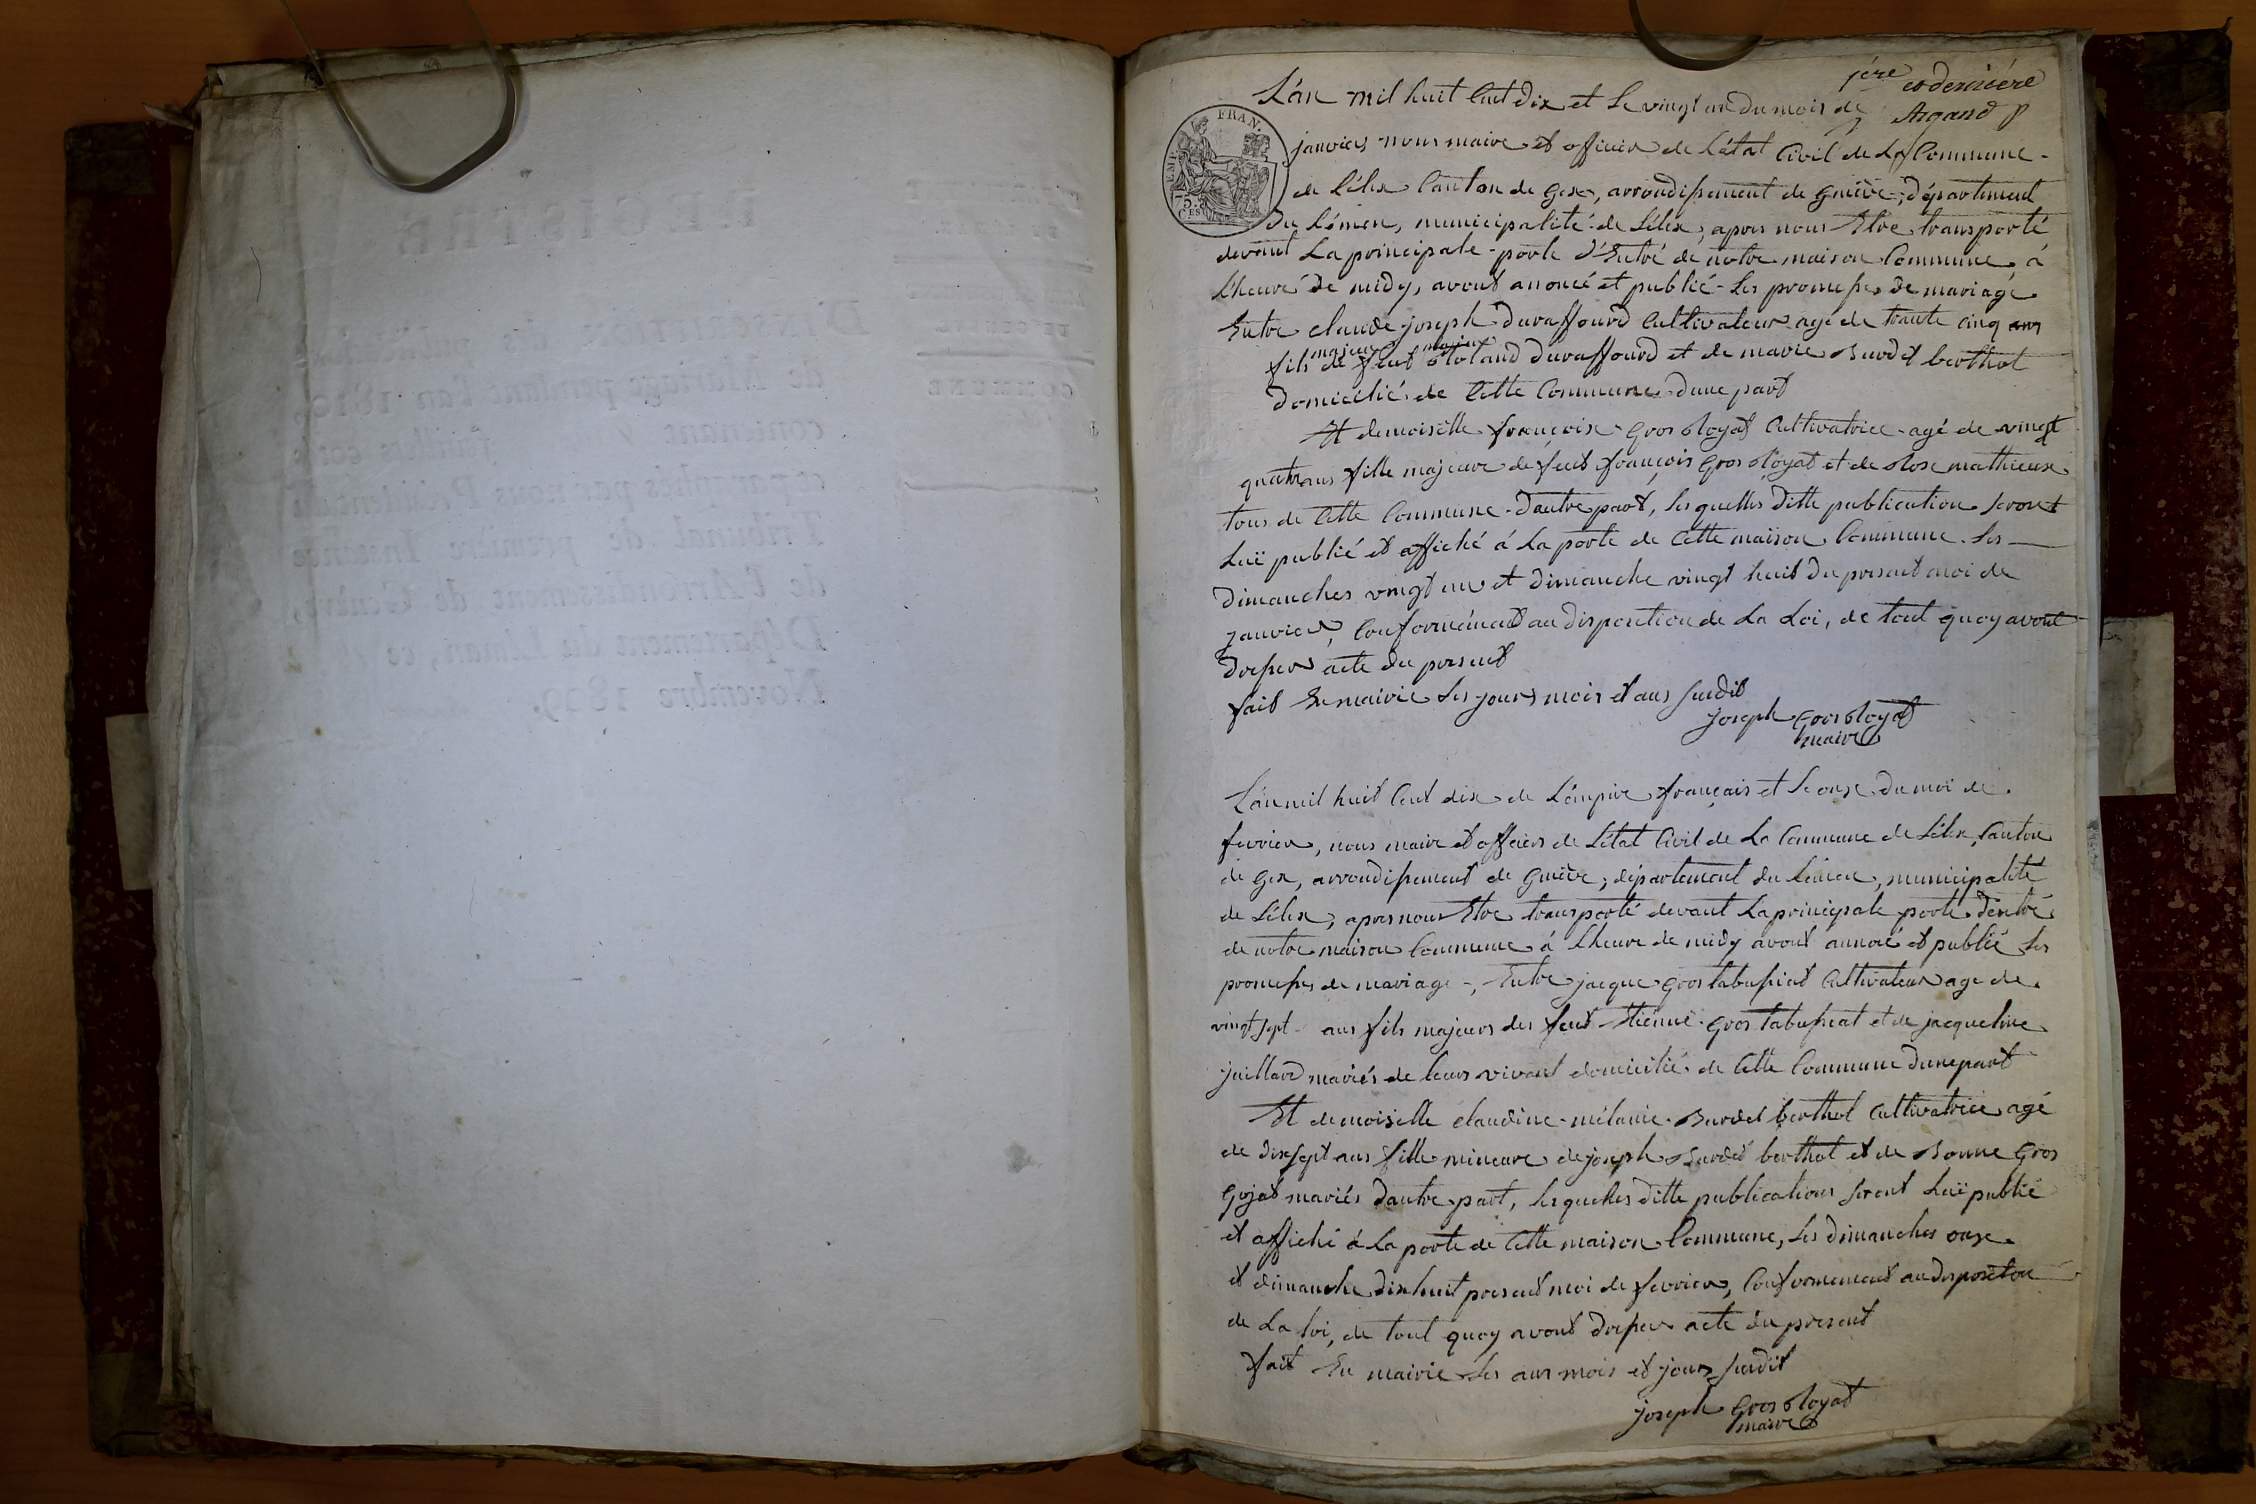 1ère et dernière
Argand P
L'an mil huit Cent dix et le vingt un du mois de
janvier nous maire et officier de L'état Civil de La Commune
EMP. FRAN.
75.
CES
de Lélex Canton de Gex, arrondissement de Genève, département
Du Lémen, municipalité de Lélex, apres nous Etre transporté
devant La principale porte d'Entré de notre maison Commune, á
Lheure de midy, avont anoncé et publié Les promesses de mariage
Entre claude joseph Duraffourd Cultivateur agé de trante cinq ans
majeur
fils de feut Roland Duraffourd et de marie Burdet berthot
Domicilié de Cette Commune dune part
Et demoiselle françoise Gros Royat Cultivatrice agé de vingt
quatre ans fille majeure de feut françois Gros Royat et de Rose mathieux
tous de Cette Commune d'autre part, les quelles ditte publication seront
Luë publié et affiché á La porte de Cette maison Commune Les
Dimanches vingt un et dimanche vingt huit du present moi de
janvier, Conformément au disposition de La Loi, de tout quoy avont
dresser acte du present
fait En mairie Les jours mois et ans susdit
joseph Gros Royat
maire
L'an mil huit Cent dix de L'émpire français et le onze du moi de
fevrier, nous maire et officier de L'état Civil de La Commune de Lélex, Canton
de Gex, arrondissement de Genève, département du Lémen, municipalité
de Lélex, apres nous Etre transporté devant La principale porte d'entré
de notre maison Commune á Lheure de midy avont annoncé et publié Les
promesses de mariage, Entre jacque Gros tabussiat Cultivateur age de
vingt sept ans fils majeurs des feut Etienne Gros tabussiat et de jacqueline
juillard mariés de leurs vivant domicilié de Cette Commune dune part
Et demoiselle claudine mélanie Burdet berthot Cultivatrice agé
de dix sept ans fille mineure de joseph Burdet berthot et de Bonne Gros
Gojat mariés dautre part, les quelles ditte publications seront Luë publié
et affiché á La porte de Cette maison Commune, Les dimanches onze
et dimanche dix huit present moi de fevrier, Conformement au disposition
de La loi, de tout quoy avont dresser acte du present
fait En mairie Les ans mois et jours susdit
joseph Gros Royat
maire